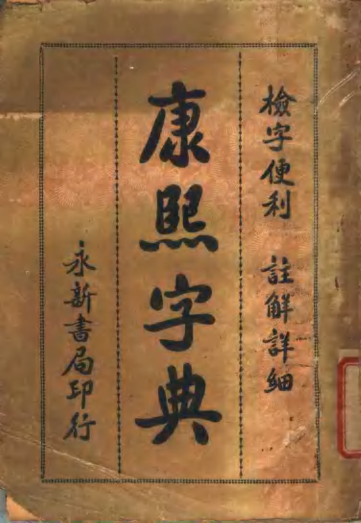 檢字便利 註解詳細
康熙字典
永新書局印行